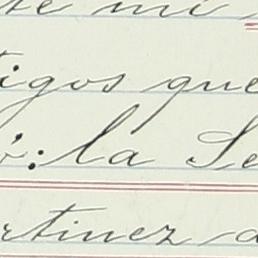 te mi
tigos que
ó: la Se
rtinez a